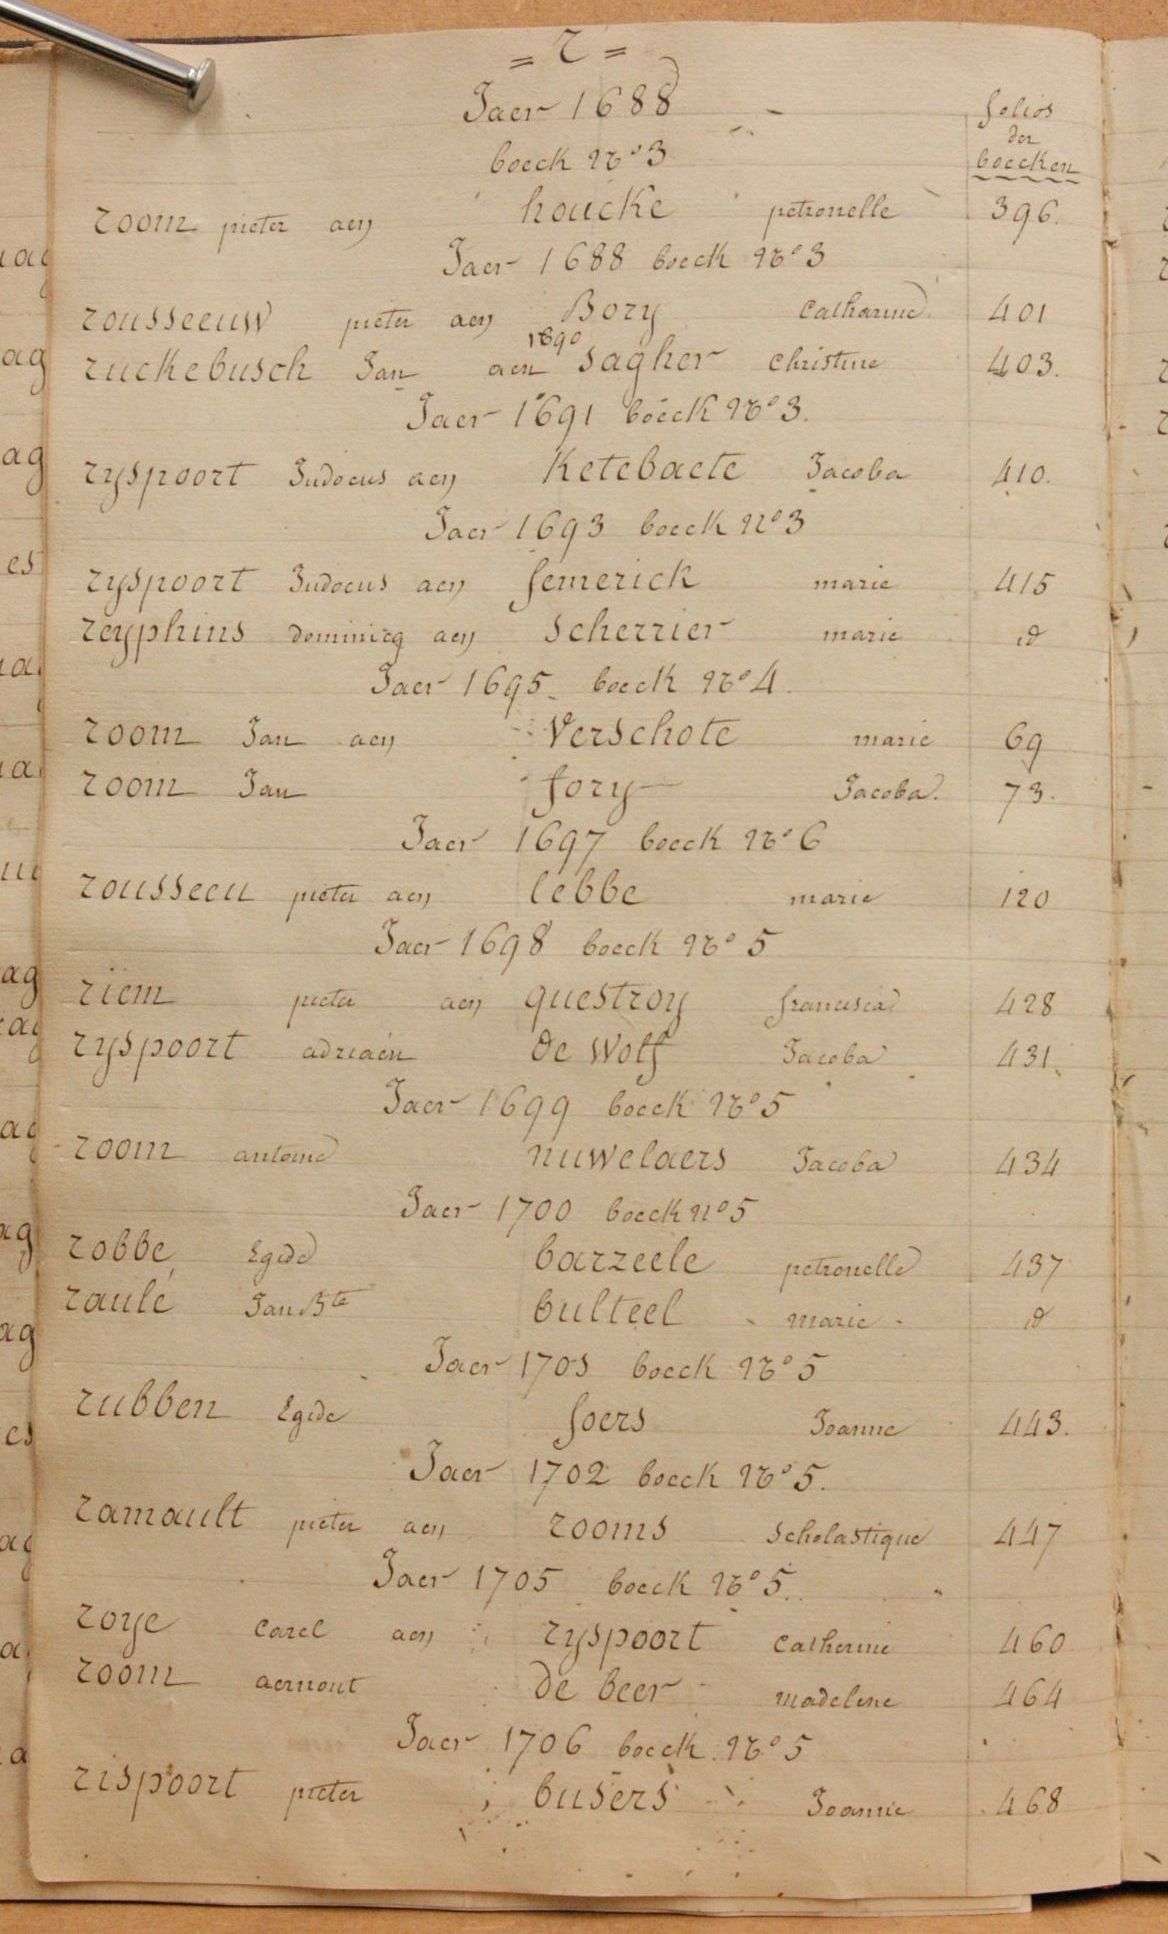 = r =
Jaer 1688
folios
der
boecken
boeck No 3
room pieter aen houcke petronelle 396.
Jaer 1688 boeck No 3
rousseeuw pieter aen Bory Catharine 401
1690
ruckebusch Jan aen sagher christine 403.
Jaer 1691 boeck No 3.
ryspoort Judocus aen Ketebaete Jacoba 410.
Jaer 1693 boeck No 3
ryspoort Judocus aen femerick marie 415
reyphins dominicq aen scherrier marie id
Jaer 1695 boeck No 4.
room Jan aen Verschote marie 69
room Jan fory Jacoba. 73.
Jaer 1697 boeck No 6
rousseeu pieter aen lebbe marie 120
Jaer 1698 boeck No 5
riem pieter aen questroy francisca 428
ryspoort adriaen de wolf Jacoba 431.
Jaer 1699 boeck No 5
room antoine nuwelaers Jacoba 434
Jaer 1700 boeck No 5
robbe Egide barzeele petronelle 437
raulé Jan Bte bulteel marie id
Jaer 1701 boeck No 5
rubben Egide foers Joanne 443.
Jaer 1702 boeck No 5.
ramault pieter aen rooms scholastique 447
Jaer 1705 boeck No 5.
roye carel aen ryspoort catherine 460
room aernout de beer madelene 464
Jaer 1706 boeck No 5
rispoort pieter busers Joanne 468